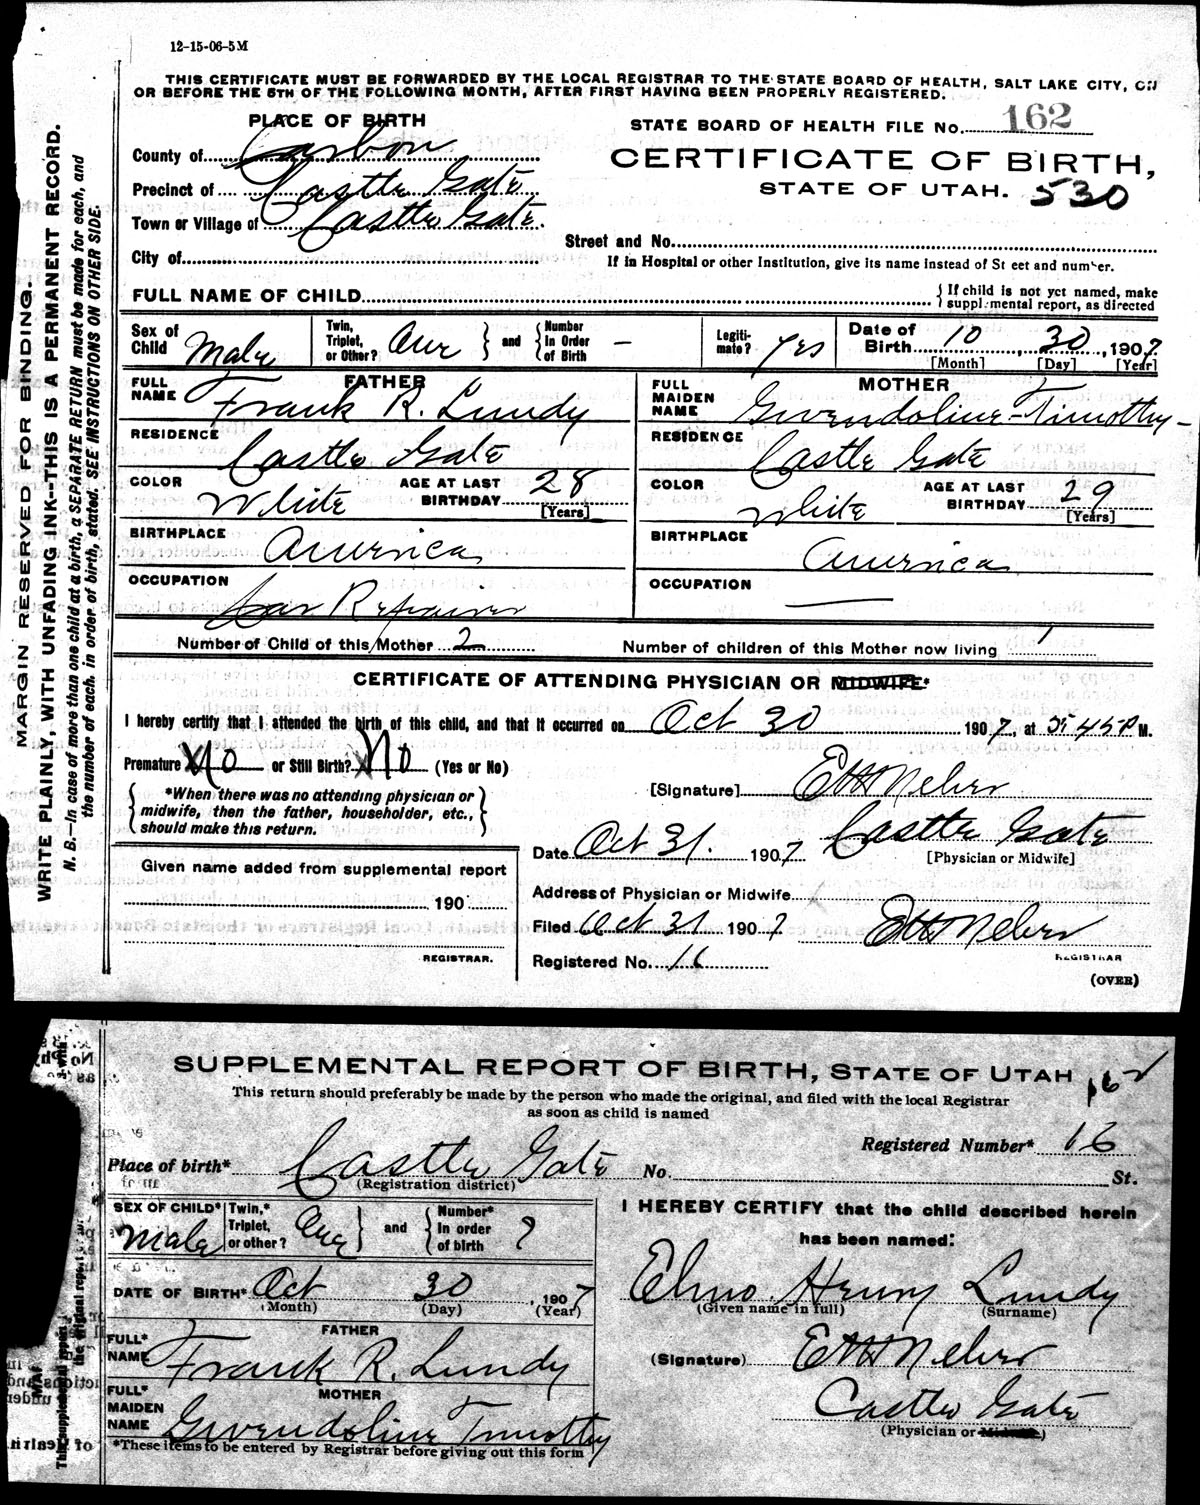 12-15-06-5M
THIS CERTIFICATE MUST BE FORWARDED BY THE LOCAL REGISTRAR TO THE STATE BOARD OF HEALTH, SALT LAKE CITY, ON
OR BEFORE THE 5TH OF THE FOLLOWING MONTH, AFTER FIRST HAVING BEEN PROPERLY REGISTERED.
MARGIN RESERVED FOR BINDING.
WRITE PLAINLY, WITH UNFADING INK--THIS IS A PERMANENT RECORD.
N. B.—In case of more than one child at a birth, a SEPARATE RETURN must be made for each, and
the number of each. in order of birth, stated. SEE INSTRUCTIONS ON OTHER SIDE.
PLACE OF BIRTH
County of Carbon
Precinct of Castle Gate
Town or Village of Castle Gate.
City of
STATE BOARD OF HEALTH FILE No. 162
CERTIFICATE OF BIRTH,
STATE OF UTAH. 530
Street and No.
If in Hospital or other Institution, give its name instead of Street and number.
FULL NAME OF CHILD
{If child is not yet named, make
supplemental report, as directed
Sex of Child Male
Twin, Triplet, or Other? One } and { Number In Order of Birth –
Legitimate? Yes
Date of Birth 10, 30, 1907.
[Month] [Day] [Year]
FATHER
FULL NAME Frank R. Lundy
RESIDENCE Castle Gate
COLOR White AGE AT LAST BIRTHDAY 28
[Years]
BIRTHPLACE America
OCCUPATION Car Repairer
MOTHER
FULL MAIDEN NAME Gwendoline Timothy
RESIDENCE Castle Gate
COLOR White AGE AT LAST BIRTHDAY 29
[Years]
BIRTHPLACE America
OCCUPATION —
Number of Child of this Mother 2
Number of children of this Mother now living 1
CERTIFICATE OF ATTENDING PHYSICIAN OR MIDWIFE*
I hereby certify that I attended the birth of this child, and that it occurred on Oct 30 1907, at 5:45 P M.
Premature No or Still Birth? No (Yes or No)
{ *When there was no attending physician or
midwife, then the father, householder, etc.,
should make this return. }
[Signature]
Castle Gate
[Physician or Midwife]
Date Oct 31. 1907
Given name added from supplemental report
190
REGISTRAR.
Address of Physician or Midwife
Filed Oct 31 1907
REGISTRAR
Registered No. 16
(OVER)
SUPPLEMENTAL REPORT OF BIRTH, STATE OF UTAH 162
This return should preferably be made by the person who made the original, and filed with the local Registrar
as soon as child is named
Registered Number* 16
Place of birth* Castle Gate No. St.
(Registration district)
SEX OF CHILD* Male
Twin,* Triplet, or other? One } and { Number* In order of birth ?
DATE OF BIRTH* Oct 30, 1907
(Month) (Day) (Year)
FATHER
FULL* NAME Frank R. Lundy
MOTHER
FULL* MAIDEN NAME Gwendoline Timothy
*These items to be entered by Registrar before giving out this form
I HEREBY CERTIFY that the child described herein
has been named:
Elmo Henry Lundy
(Given name in full) (Surname)
(Signature)
Castle Gate
(Physician or Midwife)